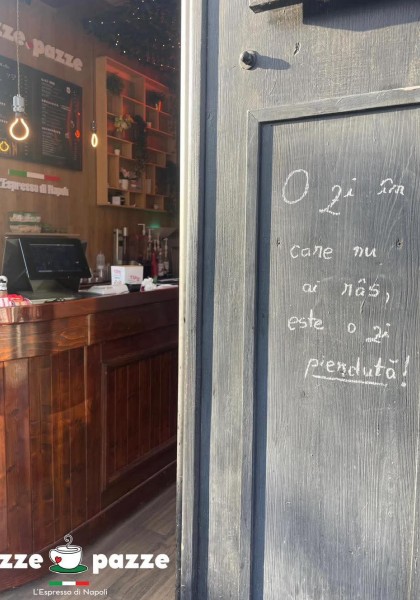 pazze
L'Espresso di Napoli
O zi în
care nu
ai râs,
este o zi
pierdută!
zze pazze
L'Espresso di Napoli